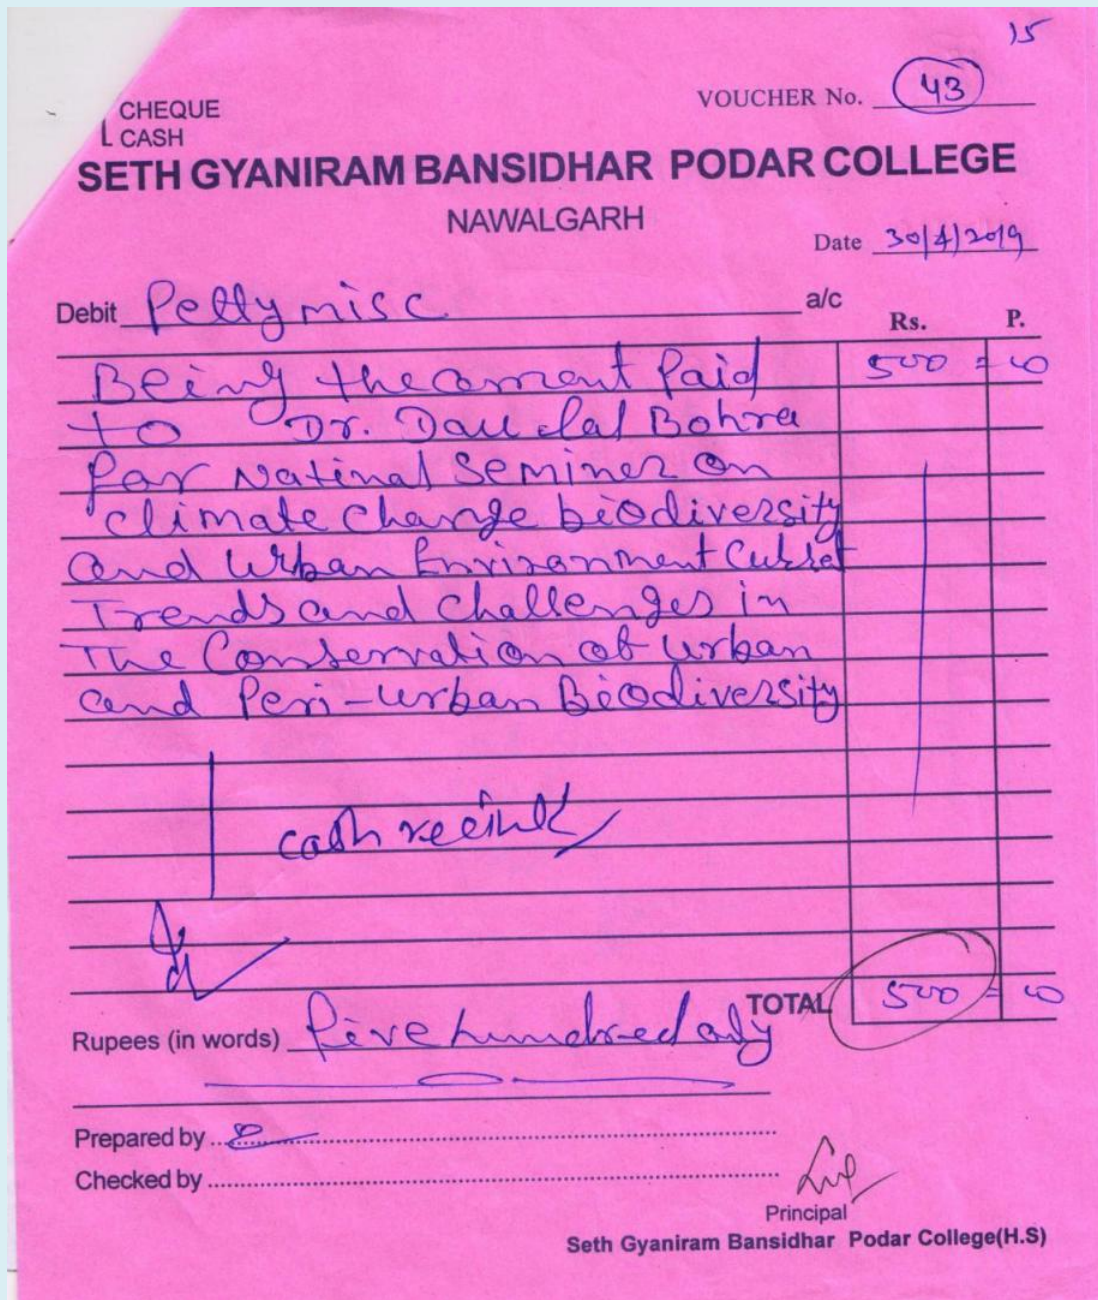 15
CHEQUE
CASH
VOUCHER No. 43
SETH GYANIRAM BANSIDHAR PODAR COLLEGE
NAWALGARH
Date 30/4/2019
Debit Petty misc a/c
Rs. P.
Being the amount Paid 500 = 00
to Dr. Dau Lal Bohra
for National Seminer on
climate change biodiversity
and Urban Environment
Trends and challenges in
The Conservation of urban
and Peri-urban Biodiversity
cash
TOTAL 500 = 00
Rupees (in words) five hundred only
Prepared by
Checked by
Principal
Seth Gyaniram Bansidhar Podar College(H.S)